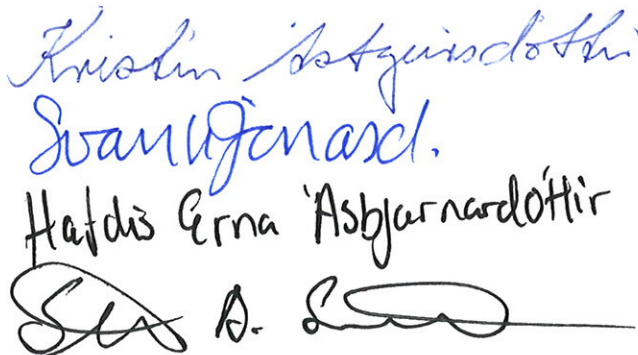 Kristín Ástgeirsdóttir
Svanh Jónasd.
Hafdís Erna Ásbjarnardóttir
A.